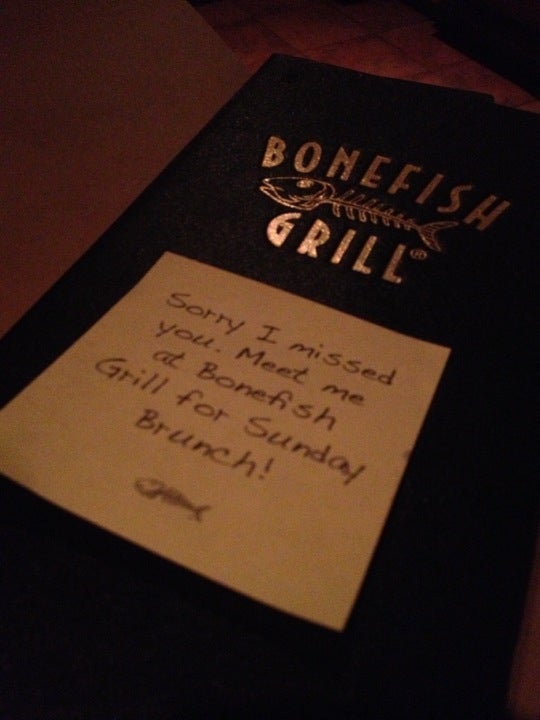 BONEFISH
GRILL®
Sorry I missed
you. Meet me
at Bonefish
Grill for Sunday
Brunch!